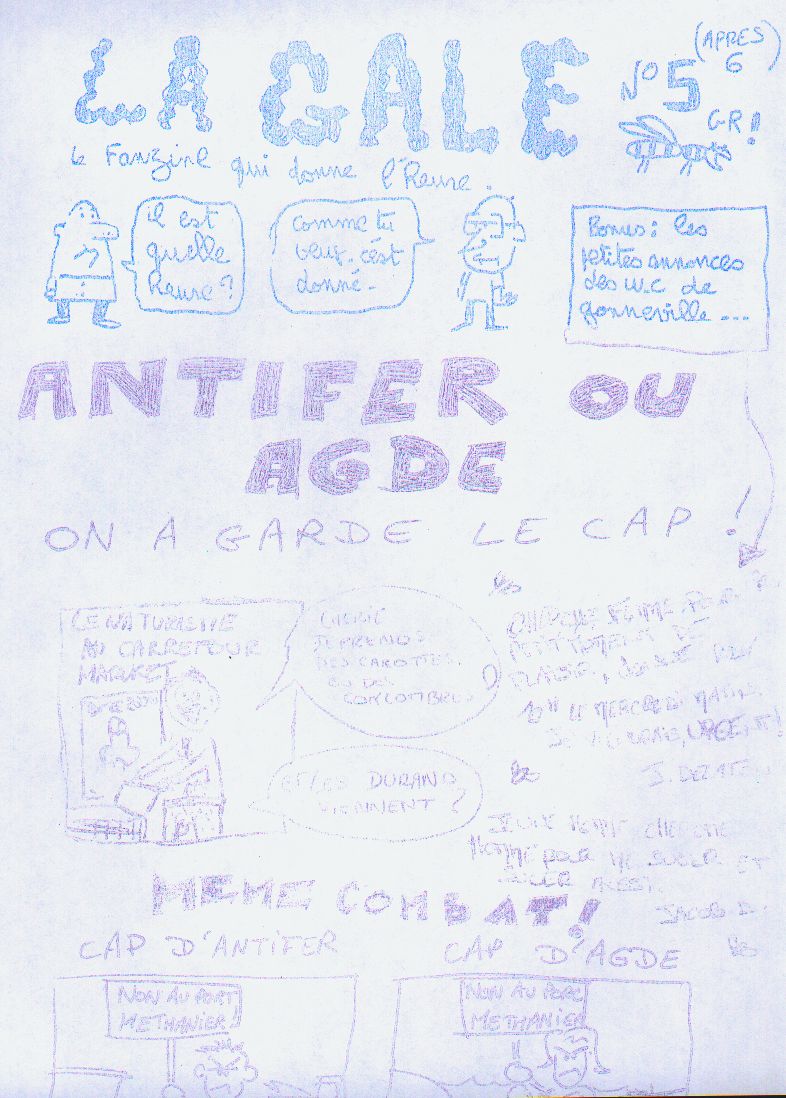 LA GALE
N° 5
(APRES 6
GR!
le Fanzine qui donne l'Reure.
il est
quelle
Reure?
comme tu
veux. c'est
donné.
Bonus: les
petites annonces
des w.c de
gonneville ...
ANTIFER OU
AGDE
ON A GARDE LE CAP !
LE NATURISTE
AU CARREFOUR
MARKET
CHERIE
JE PRENDS
DES CAROTTES
OU DES
CONCOMBRES
ET LES DURAND
VIENNENT ?
CHERCHE FEMME POUR
PETIT MOMENT DE
PLAISIR,
10H LE MERCREDI MATIN
URGENT!
JEUNE HOMME CHERCHE
HOMME POUR ME SUCER ET
JACOB D.
MEME COMBAT!
CAP D'ANTIFER
CAP D'AGDE
NON AU PORT
METHANIER!
NON AU PORC
METHANIER